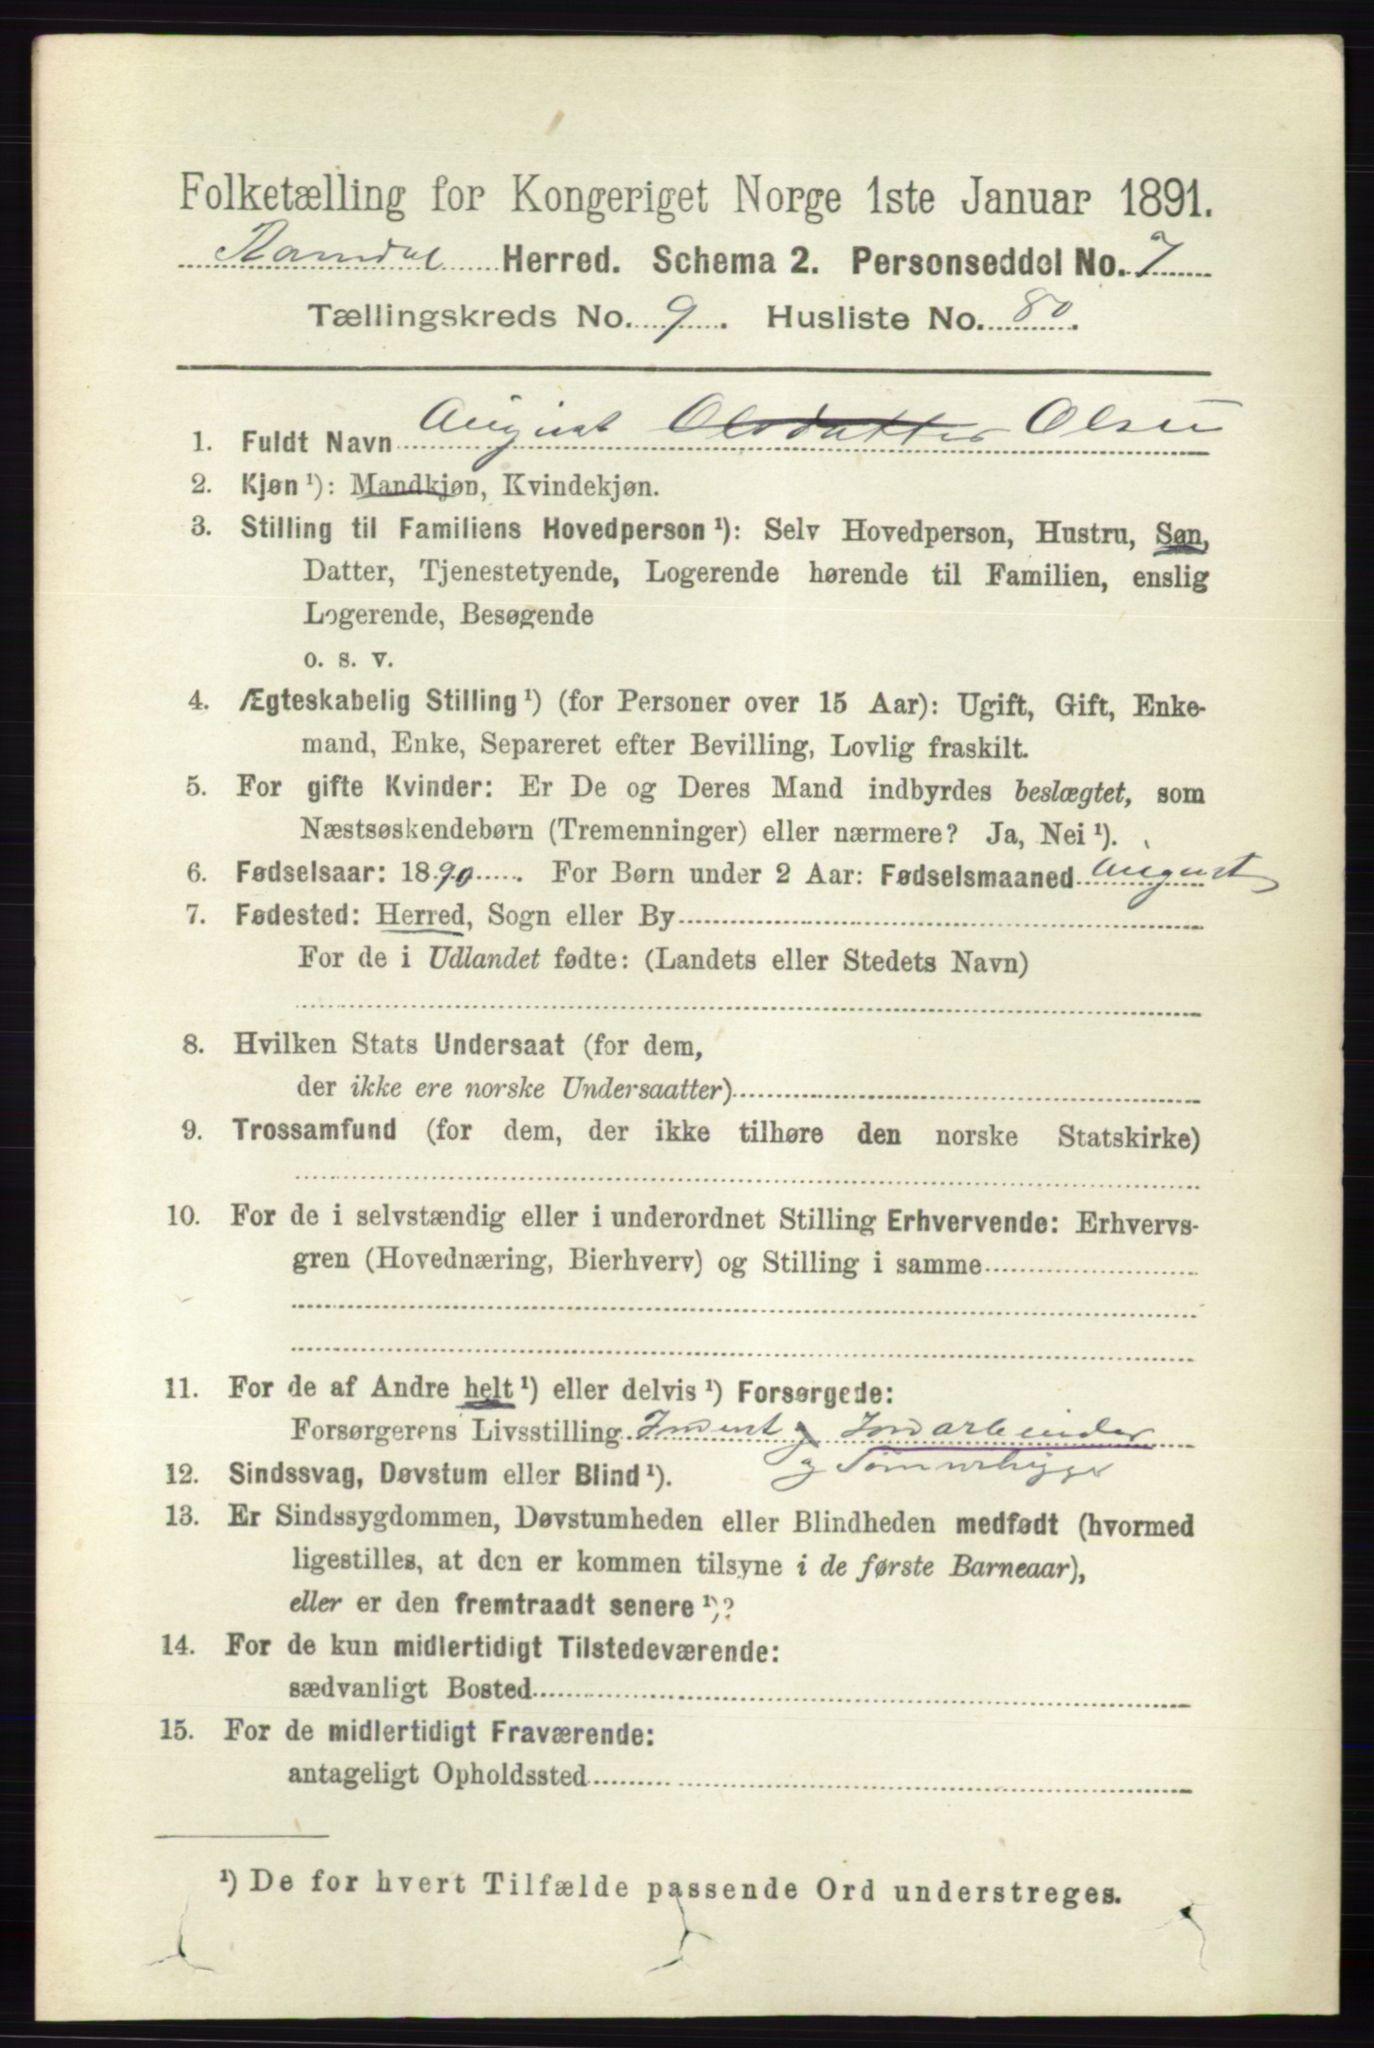 Folketælling for Kongeriget Norge 1ste Januar 1891.
Ramdal Herred. Schema 2. Personseddel No. 7
Tællingskreds No. 9. Husliste No. 80.
1. Fuldt Navn August Olsdatter Olsen
2. Kjøn ¹): Mandkjøn, Kvindekjøn.
3. Stilling til Familiens Hovedperson ¹): Selv Hovedperson, Hustru, Søn,
Datter, Tjenestetyende, Logerende hørende til Familien, enslig
Logerende, Besøgende
o. s. v.
4. Ægteskabelig Stilling ¹) (for Personer over 15 Aar): Ugift, Gift, Enke-
mand, Enke, Separeret efter Bevilling, Lovlig fraskilt.
5. For gifte Kvinder: Er De og Deres Mand indbyrdes beslægtet, som
Næstsøskendebørn (Tremenninger) eller nærmere? Ja, Nei ¹).
6. Fødselsaar: 1890. For Børn under 2 Aar: Fødselsmaaned August
7. Fødested: Herred, Sogn eller By
For de i Udlandet fødte: (Landets eller Stedets Navn)
8. Hvilken Stats Undersaat (for dem,
der ikke ere norske Undersaatter)
9. Trossamfund (for dem, der ikke tilhøre den norske Statskirke)
10. For de i selvstændig eller i underordnet Stilling Erhvervende: Erhvervs-
gren (Hovednæring, Bierhverv) og Stilling i samme
11. For de af Andre helt ¹) eller delvis ¹) Forsørgede:
Forsørgerens Livsstilling Inderst og Jordarbeider
12. Sindssvag, Døvstum eller Blind ¹). og Tømmerhugger
13. Er Sindssygdommen, Døvstumheden eller Blindheden medfødt (hvormed
ligestilles, at den er kommen tilsyne i de første Barneaar),
eller er den fremtraadt senere ¹)?
14. For de kun midlertidigt Tilstedeværende:
sædvanligt Bosted
15. For de midlertidigt Fraværende:
antageligt Opholdssted
¹) De for hvert Tilfælde passende Ord understreges.